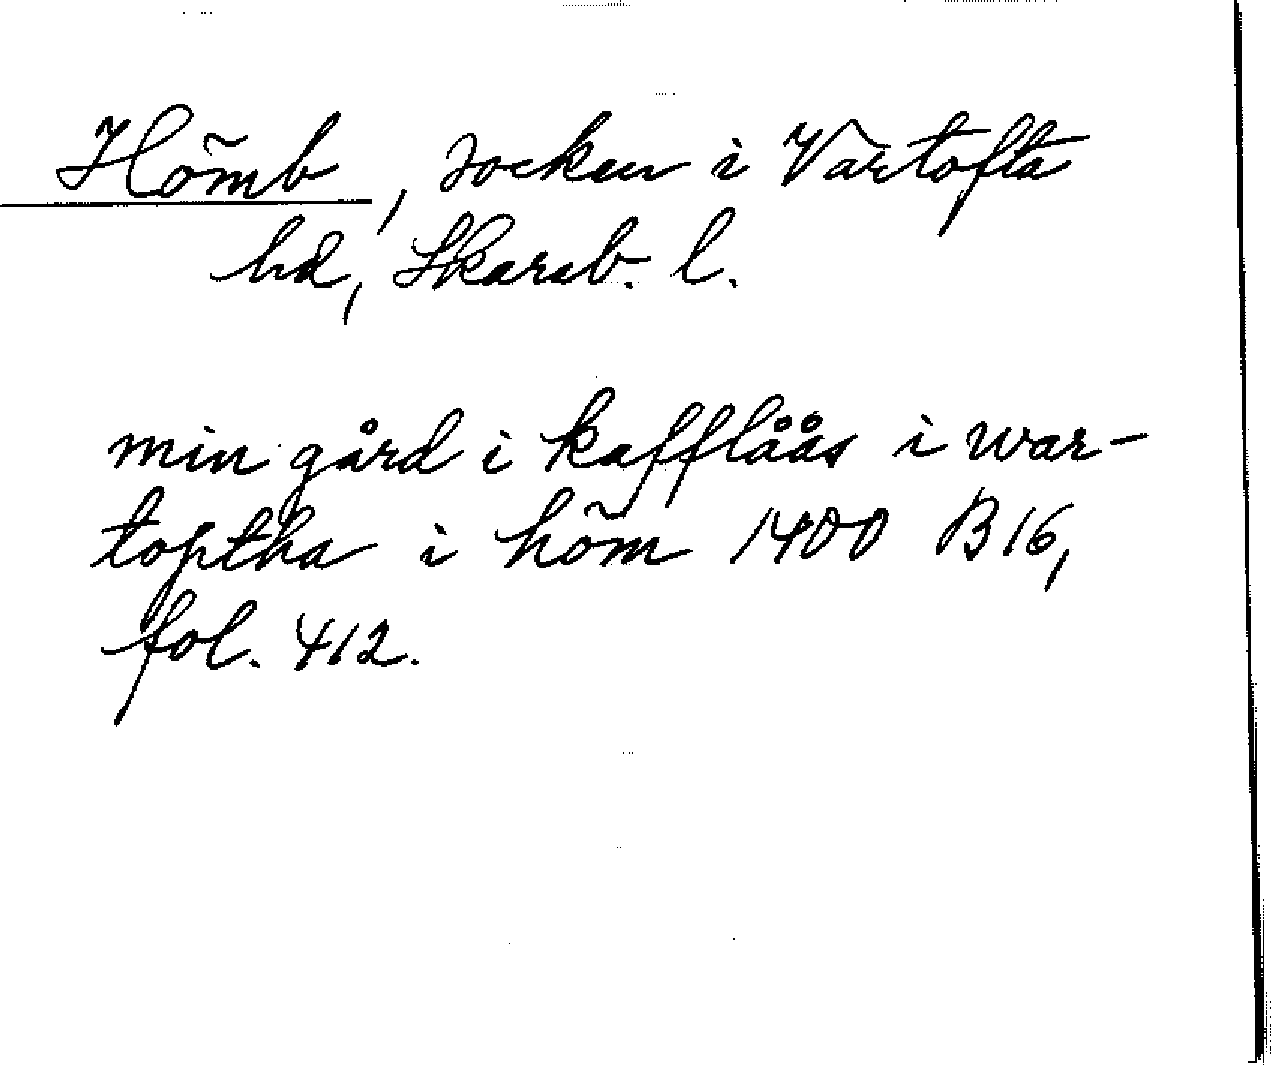 Hömb, socken i Vartofta
hd, Skarab. l.
min gård i kafflåås i war-
toptha i höm 1400 B16,
fol. 412.